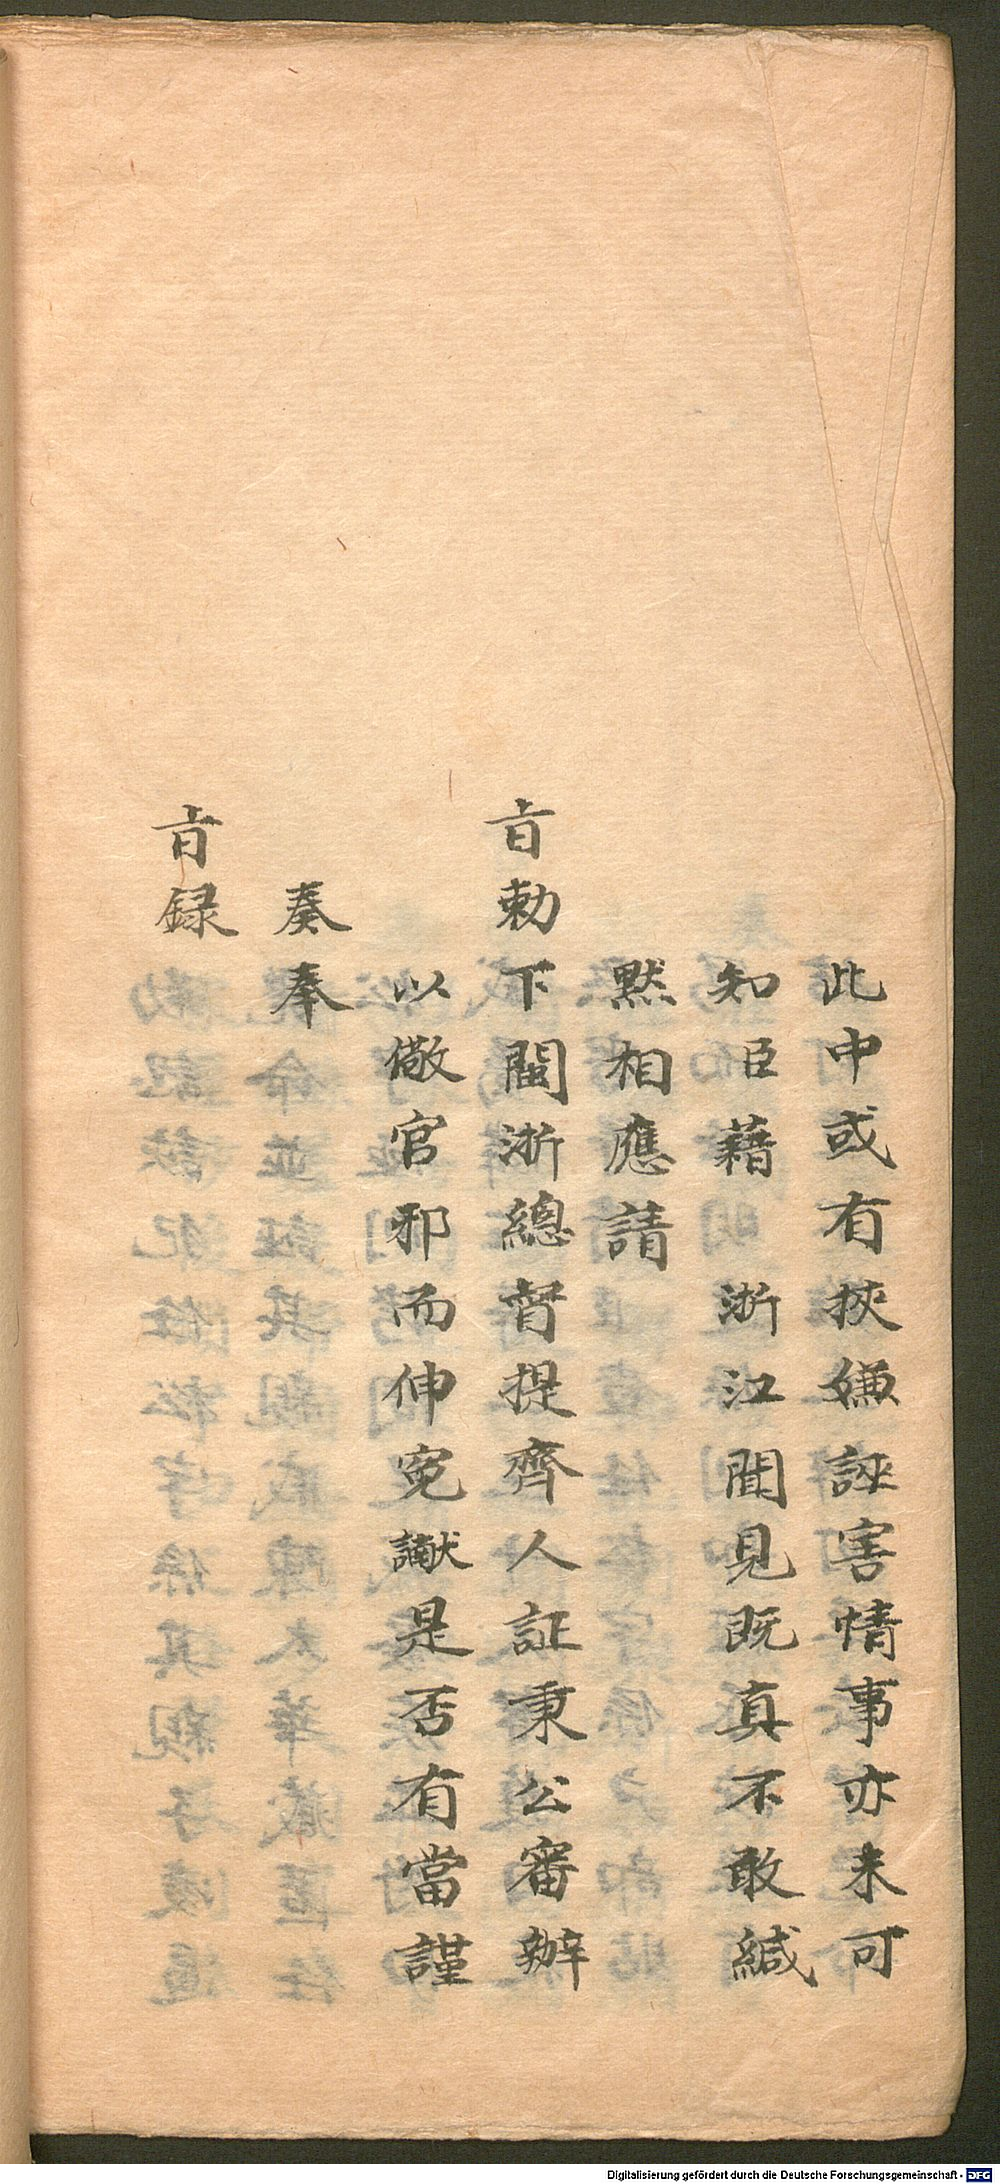 此中或有挾嫌誣害情事亦未可
知臣藉 浙江聞見既真不敢緘
默相應請
旨勅下閩浙總督提齊人証秉公審辦
以儆官邪而伸寃讞是否有當謹
奏奉
旨録
Digitalisierung gefördert durch die Deutsche Forschungsgemeinschaft - DFG